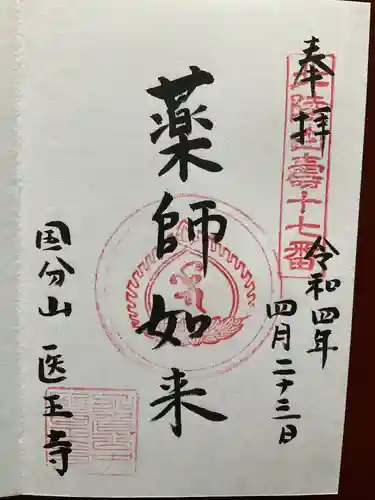 奉拝
令和四年
四月二十三日
薬師如来
国分山 医王寺